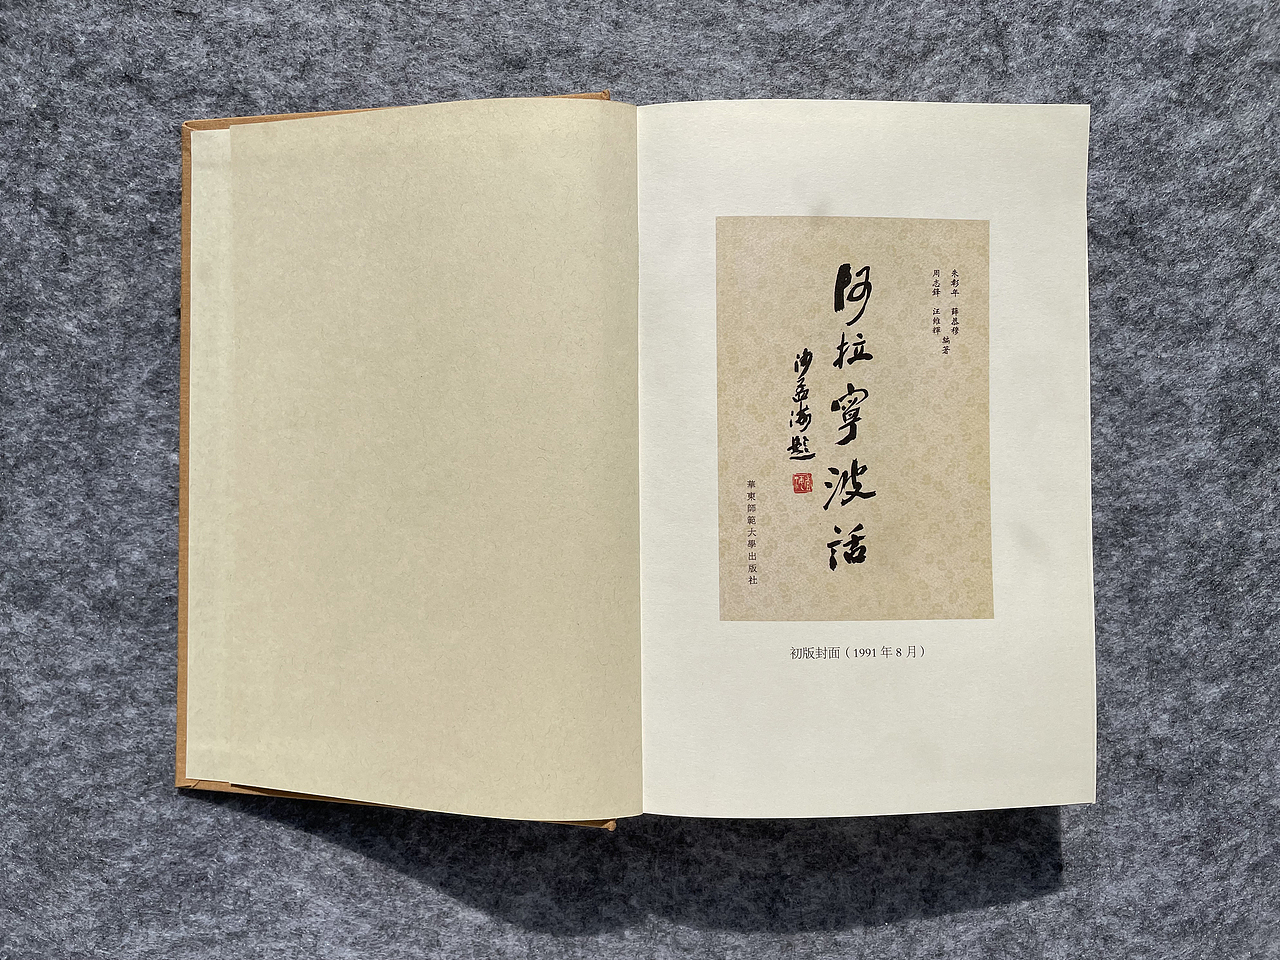 朱彰年 薛恭穆
周志鋒 汪維輝
編著
阿拉寧波話
沙孟海題
華東師範大學出版社
初版封面（1991 年 8 月）